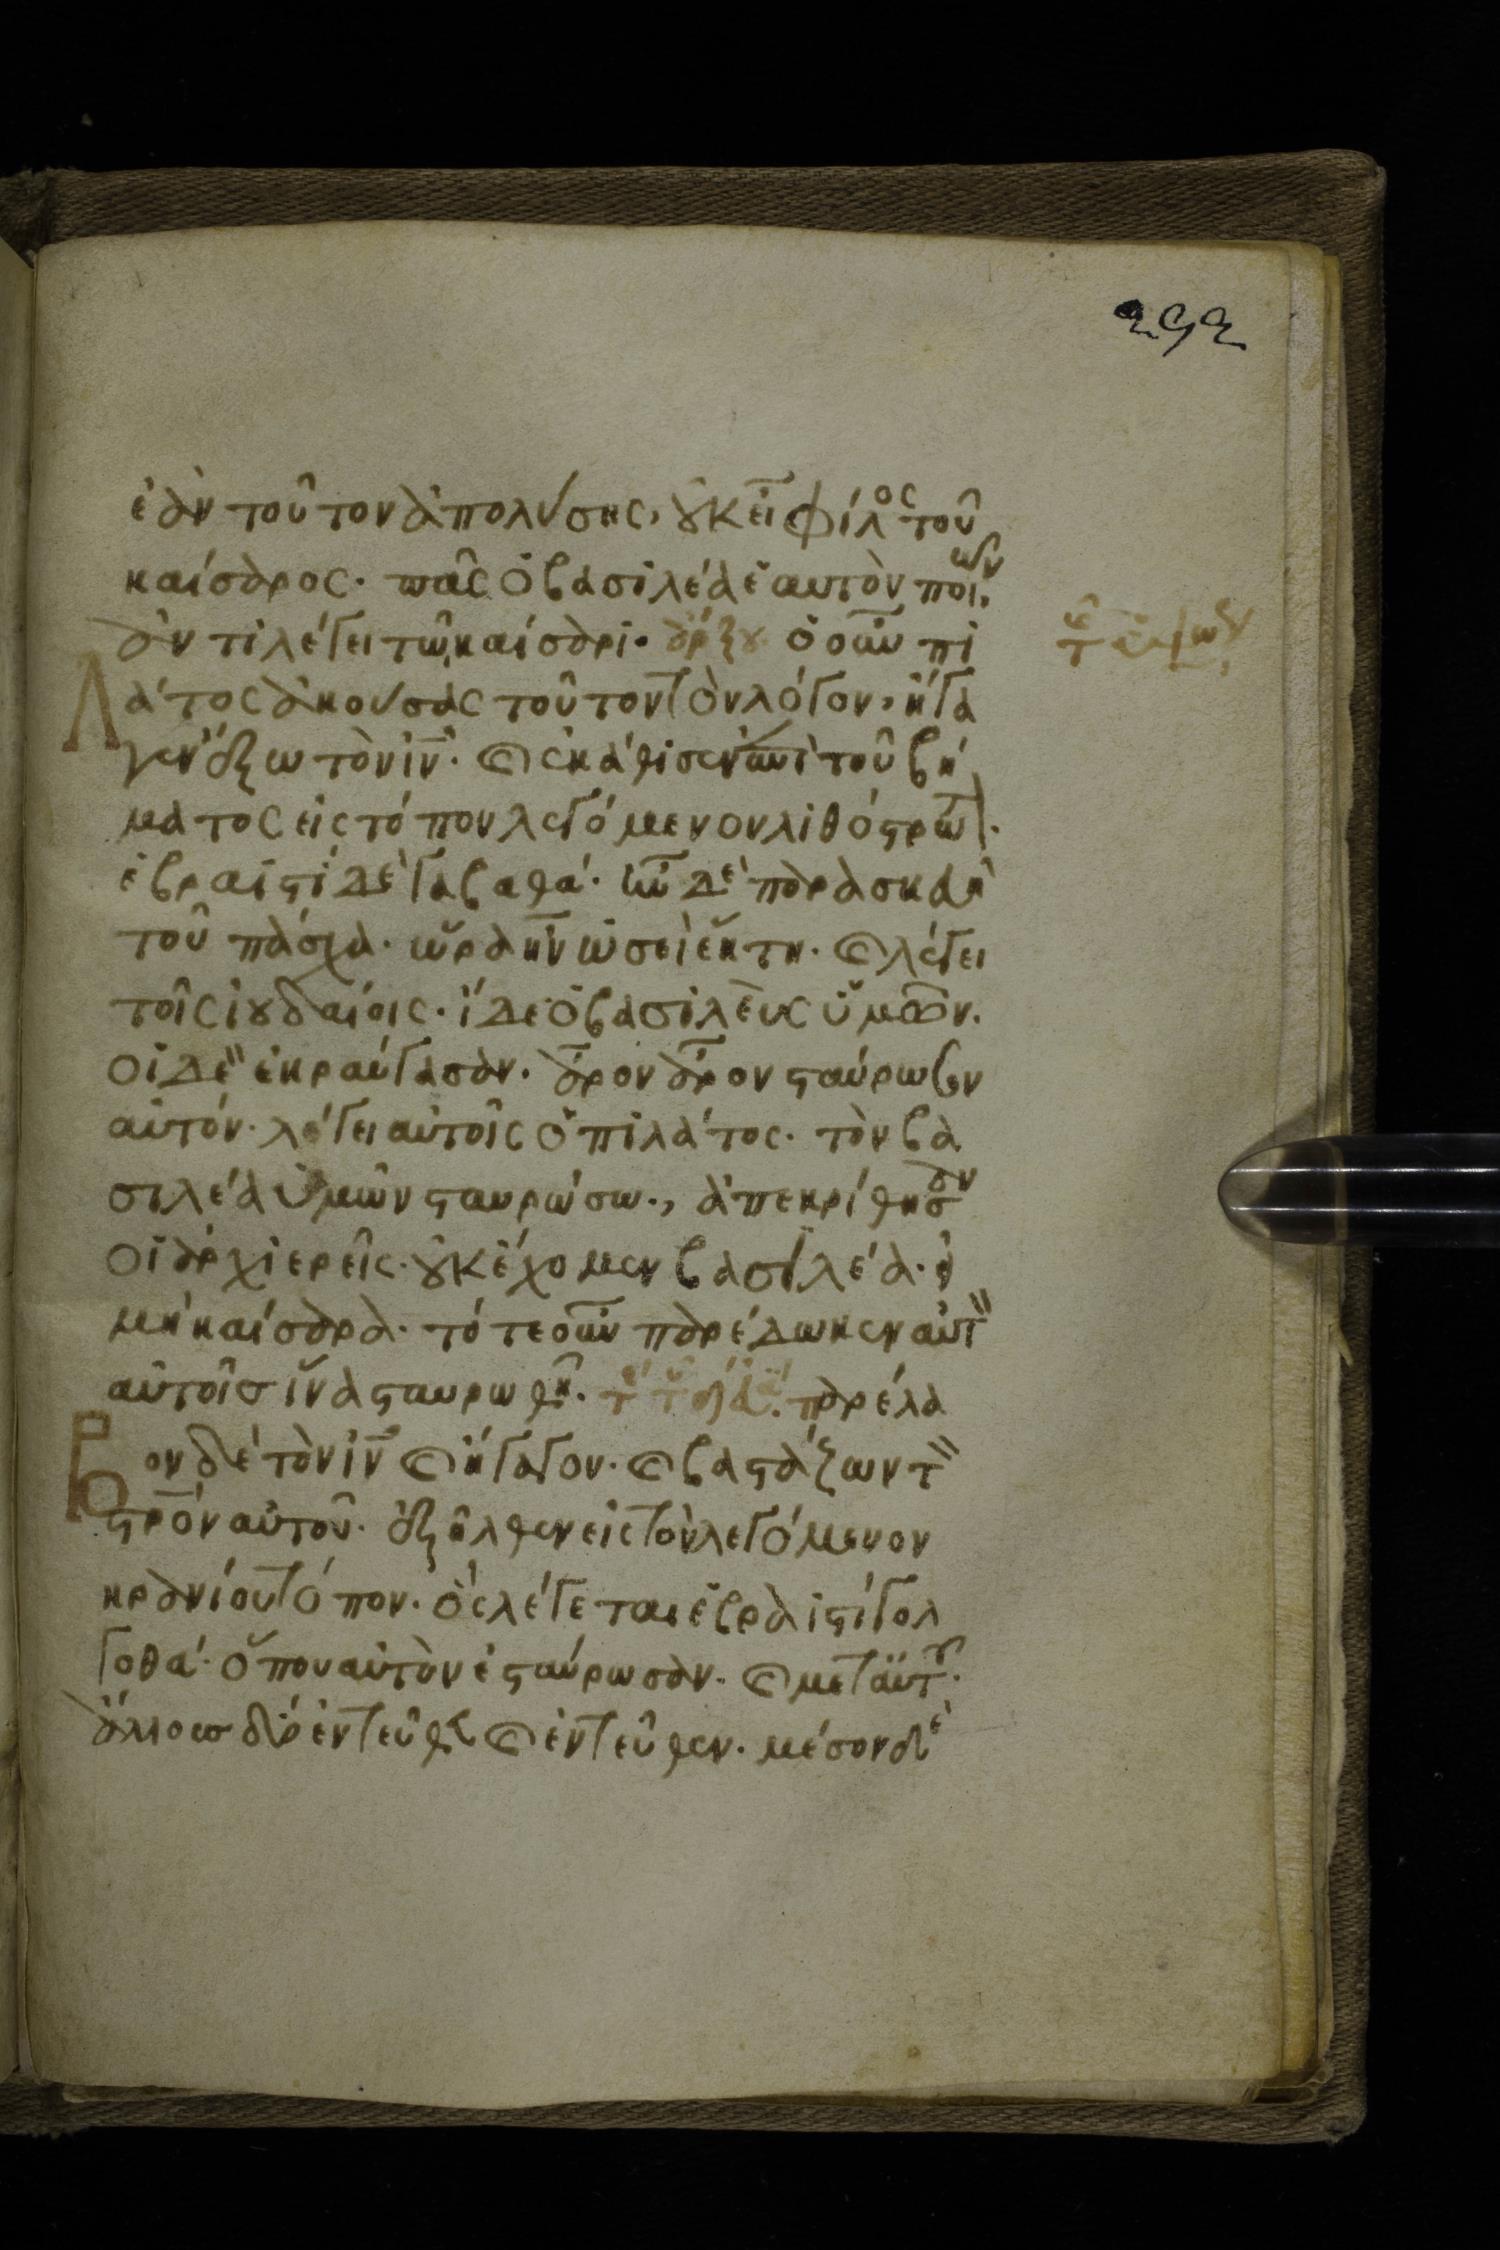 292
ἐὰν τοῦτον ἀπολύσης, ȣκ εἶ φίλος τοῦ
καίσαρος. πᾶς ὁ βασιλέα ἑαυτὸν ποιῶν,
ἀντιλέγει τῶ καίσαρι. ὁ οὖν πι
λάτος ἀκούσας τοῦτον τὸν λόγον, ἤγα
γεν ἔξω τὸν ἰν̅. κ ἐκάθισεν ἐπὶ τοῦ βή
ματος εἰς τόπον λεγόμενον λιθόστρωτ.
ἑβραϊστὶ δὲ γαβαθά. ἦν δὲ παρασκευὴ
τοῦ πάσχα. ὥρα ἦν ὡσεὶ ἕκτη. κ λέγει
τοῖς ἰȣδαίοις. ἴδε ὁ βασιλεὺς ὑμῶν.
οἱ δὲ ἐκραύγασαν. ἆρον ἆρον σταύρωσον
αὐτόν. λέγει αὐτοῖς ὁ πιλάτος. τὸν βα
σιλέα ὑμῶν σταυρώσω., ἀπεκρίθησαν
οἱ ἀρχιερεῖς. ȣκ ἔχομεν βασιλέα. εἰ
μὴ καίσαρα. τότε οὖν παρέδωκεν αὐτ
αὐτοῖς ἵνα σταυρωθῆ. παρέλα
βον δὲ τὸν ἰν̅ κ ἤγαγον. κ βαστάζων τ
στρ̅ὸν αὐτοῦ. ἐξῆλθεν εἰς τὸν λεγόμενον
κρανίου τόπον. ὃς λέγεται ἑβραϊστὶ γολ
γοθά. ὅπου αὐτὸν ἐσταύρωσαν. κ μετ αὐτȣ.
ἄλλους δύο ἐντεῦθεν κ ἐντεῦθεν. μέσον δὲ